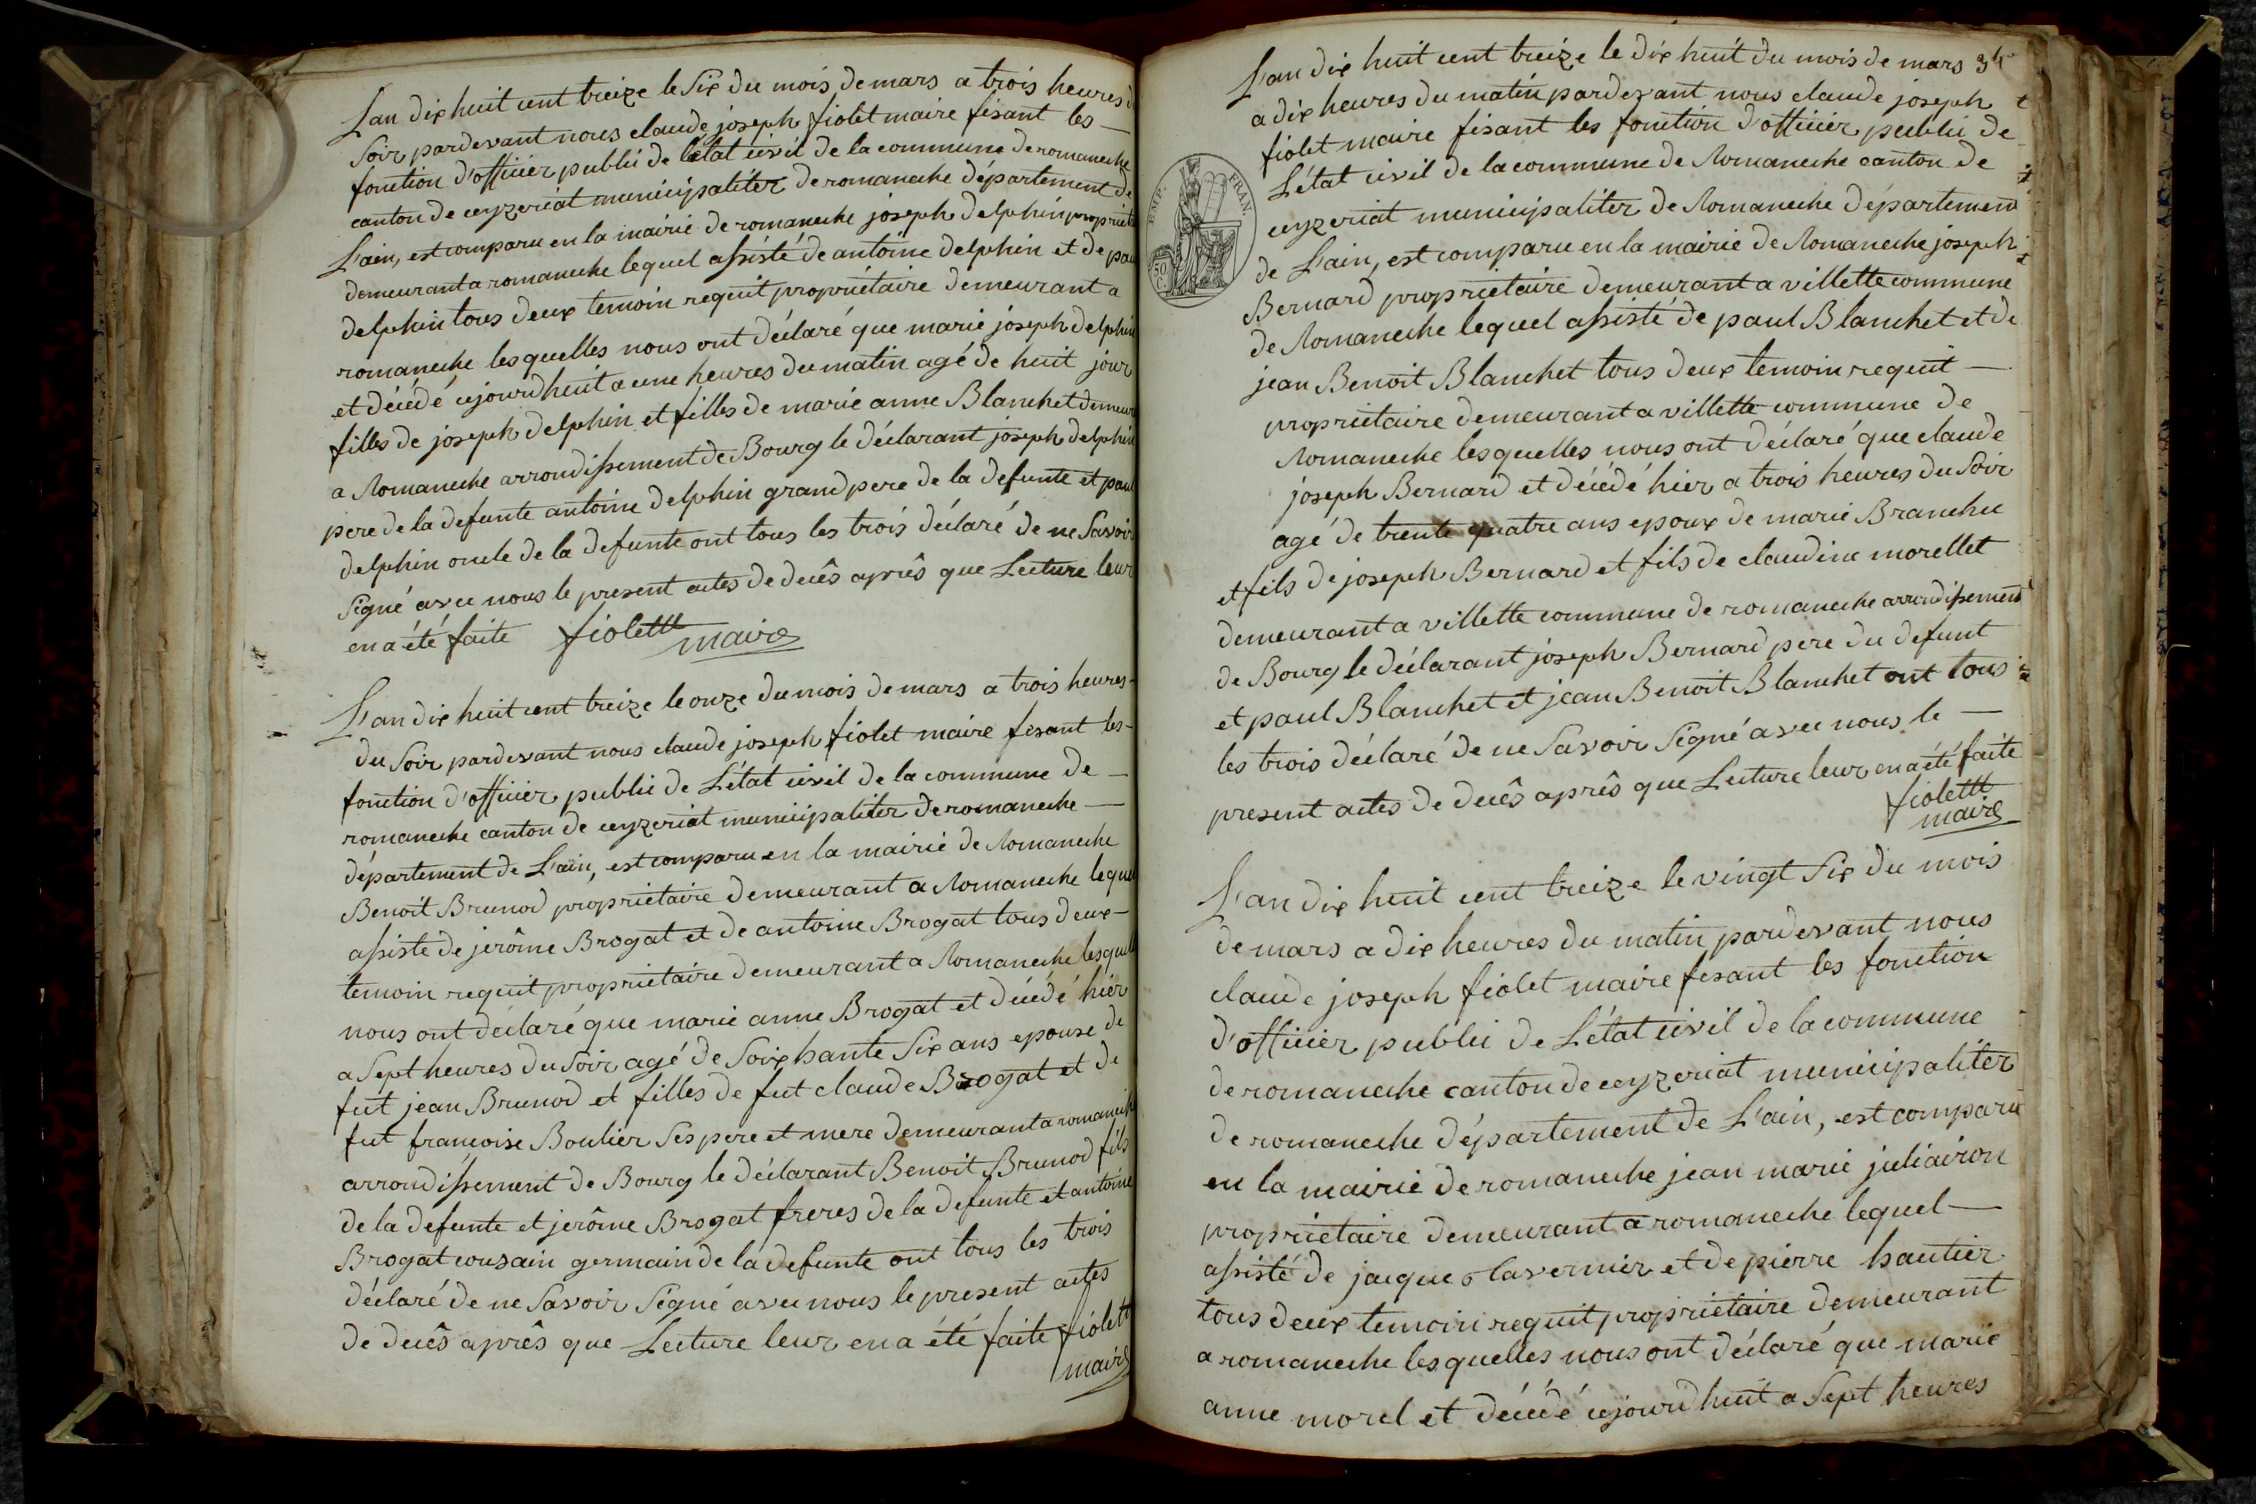 L'an dix huit cent treize le Six du mois de mars a trois heures du
Soir pardevant nous claude joseph fiolet maire fesant les
fonction d'officier public de létat civil de la commune de romaneche
canton de ceyzeriat municipaliter de romaneche département de
L'ain, est comparu en la mairie de romaneche joseph delphin propriet
demeurant a romaneche lequel assisté de antoine delphin et de paul
delphin tous deux temoin requit propriétaire demeurant a
romaneche lesquelles nous ont déclaré que marie joseph delphin
et décédé cejourdhuit a une heures du matin agé de huit jour
filles de joseph delphin et filles de marie anne Blanchet demeur
a Romaneche arrondissement de Bourg le déclarant joseph delphin
pere de la defunte antoine delphin grand pere de la defunte et paul
delphin oncle de la defunte ont tous les trois déclaré de ne Savoir
Signé avec nous le present actes de decês aprês que Lecture leur
en a été faite fiolettt
maire
L'an dix huit cent treize le onze du mois de mars a trois heures
du Soir pardevant nous claude joseph fiolet maire fesant les
fonction d'officier public de L'état civil de la commune de
romaneche canton de ceyzeriat municipaliter de romaneche
département de L'ain, est comparu en la mairie de Romaneche
Benoit Brunod propriétaire demeurant a Romaneche lequel
assiste de jerôme Brogat et de antoine Brogat tous deux
temoin requit propriétaire demeurant a Romaneche lesquel
nous ont déclaré que marie anne Brogat et décédé hier
a Sept heures du Soir agé de Soixhante Six ans epouse de
fut jean Brunod et filles de fut claude Brogat et de
fut francoise Boulier Ses pere et mere demeurant a romaneche
arrondissement de Bourg le déclarant Benoit Brunod fils
de la defunte et jerôme Brogat freres de la defunte et antoine
Brogat cousain germain de la defunte ont tous les trois
déclaré de ne Savoir Signé avec nous le present actes
de decês aprês que Lecture leur en a été faite fiolett
maire
L'an dix huit cent treize le dix huit du mois de mars 34
a dix heures du matin pardevant nous claude joseph
fiolet maire fesant les fonction d'officier public de
L'état civil de la commune de Romaneche canton de
ceyzeriat municipaliter de Romaneche département
de L'ain, est comparu en la mairie de Romaneche joseph
Bernard propriétaire demeurant a villette commune
de Romaneche lequel assisté de paul Blanchet et de
jean Benoit Blanchet tous deux temoin requit
propriétaire demeurant a villette commune de
Romaneche lesquelles nous ont déclaré que claude
joseph Bernard et décédé hier a trois heures du Soir
agé de trente quatre ans epoux de marie Branche
et fils de joseph Bernard et fils de claudine morellet
demeurant a villette commune de romaneche arrondissement
de Bourg le déclarant joseph Bernard pere du defunt
et paul Blanchet et jean Benoit Blanchet ont tous
les trois déclaré de ne Savoir Signé avec nous le
present actes de decês aprês que Lecture leur en a été faite
fiolettt
maire
EMP. FRAN.
50
C.
L'an dix huit cent treize le vingt Six du mois
de mars a dix heures du matin pardevant nous
claude joseph fiolet maire fesant les fonction
d'officier public de L'état civil de la commune
de romaneche canton de ceyzeriat municipaliter
de romaneche département de L'ain, est comparu
en la mairie de romaneche jean marie juliairon
propriétaire demeurant a romaneche lequel
assisté de jacque lavernier et de pierre hautier
tous deux temoin requit propriétaire demeurant
a romaneche lesquelles nous ont déclaré que marie
anne morel et décédé cejourd'huit a Sept heures